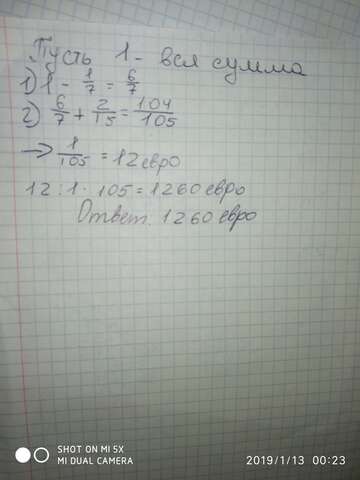 Пусть 1 - вся сумма
1) 1 - 1/7 = 6/7
2) 6/7 + 2/15 = 104/105
→ 1/105 = 12 евро
12 : 1 · 105 = 1260 евро
Ответ. 1260 евро
SHOT ON MI 5X
MI DUAL CAMERA
2019/1/13 00:23